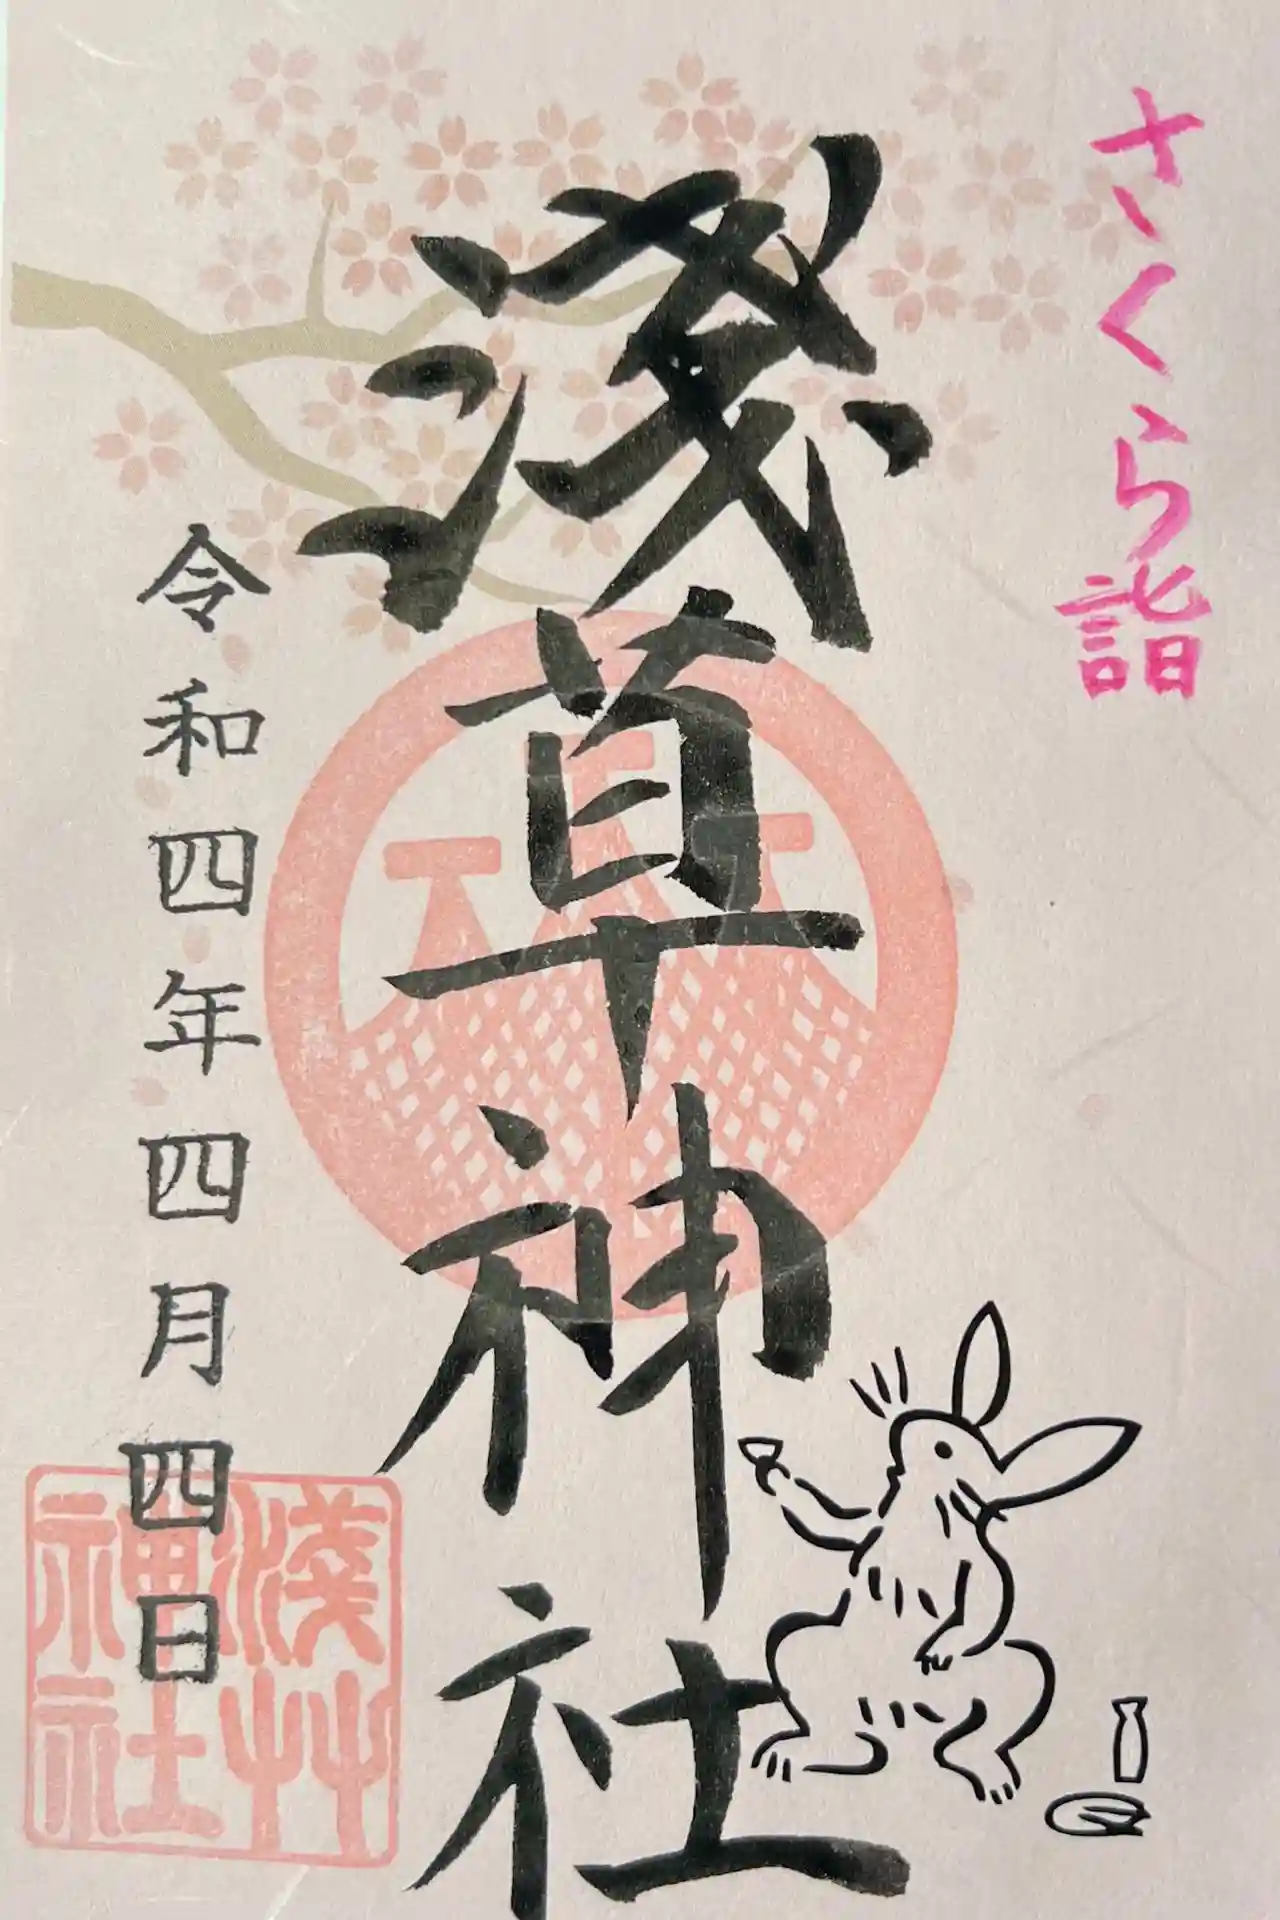 さくら詣
淺草神社
令和四年四月四日
淺艸
神社